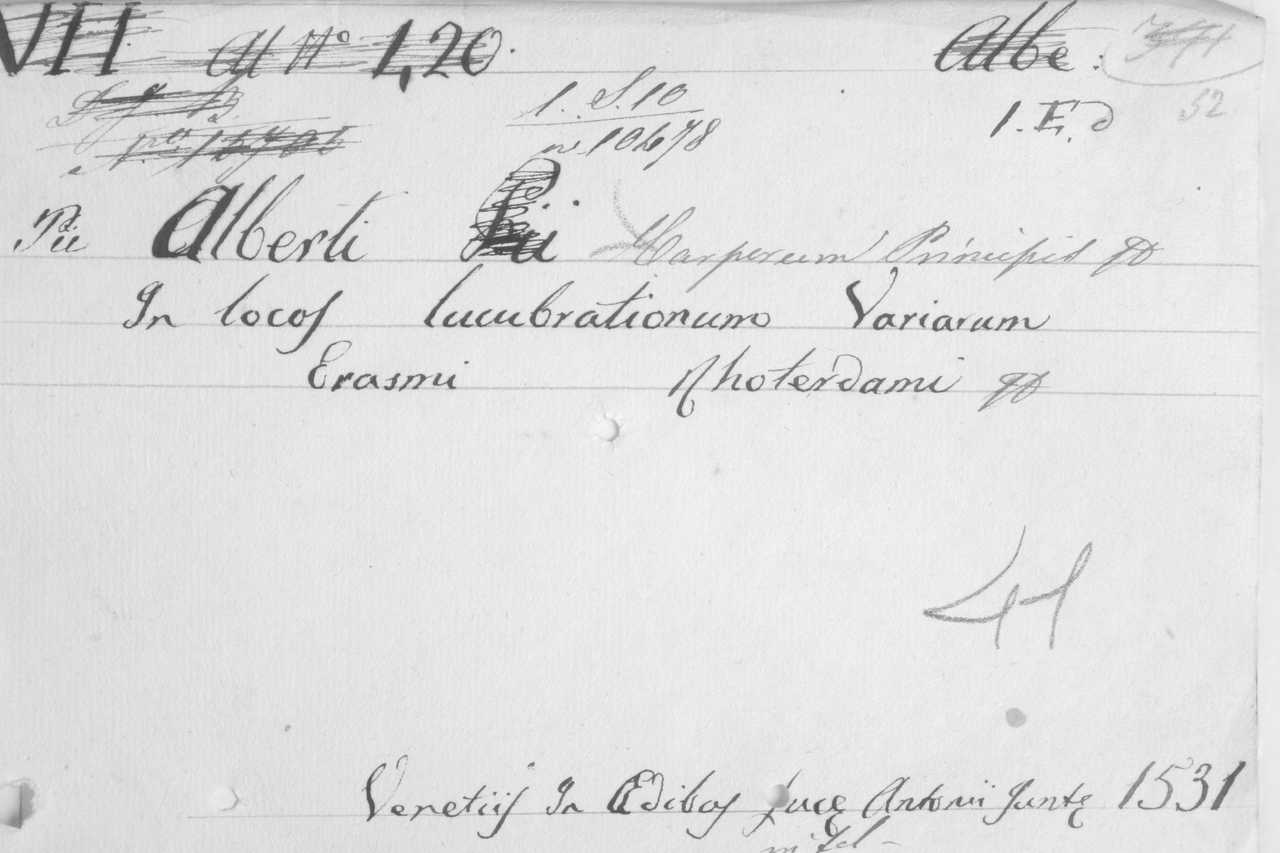 VII All Nº 1,20. Albe:
52
1. S. 10 1. E. d
n 10678
Pii Alberti Pii Carporum Principis
In locos lucubrationum Variarum
Erasmi Rhoterdami
41
Venetiis In Ædibos Lucę Antonii Juntę 1531